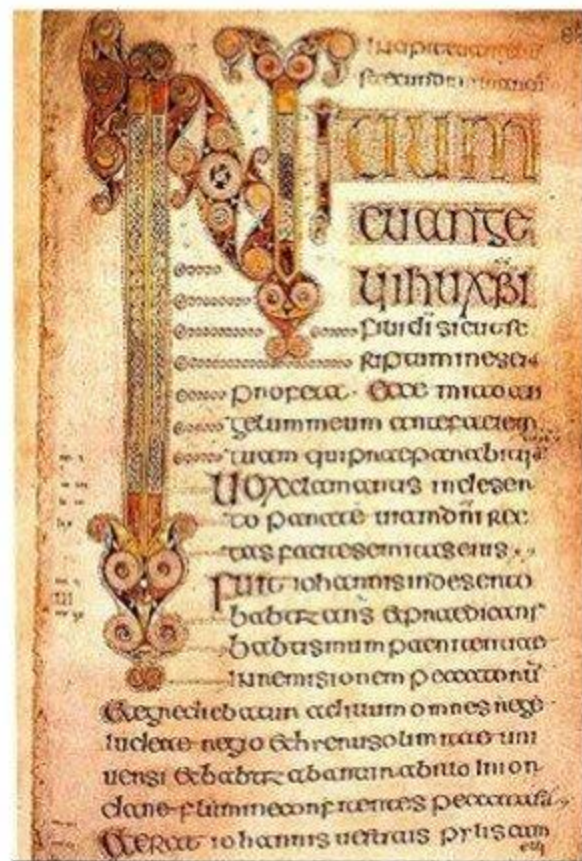 INI
TIUM
euange
lii ihu xpi
fili di sicut sc
riptum in esaia
profeta · Ecce mitto an
gelum meum ante faciem
tuam qui praeparabit
Uox clamantis in deser
to parate uiam dni rec
tas facite semitas eius
Fuit iohannis in deserto
babtizans & praedicans
babtismum paenitentiae
in remisionem peccatorum
& egrediebatur ad illum omnes
iudeae regio & hierusolimitae uni
uersi & babtizabantur ab illo in ior
dane flumine confitentes peccata sua
& erat iohannis uestitus pylis cam